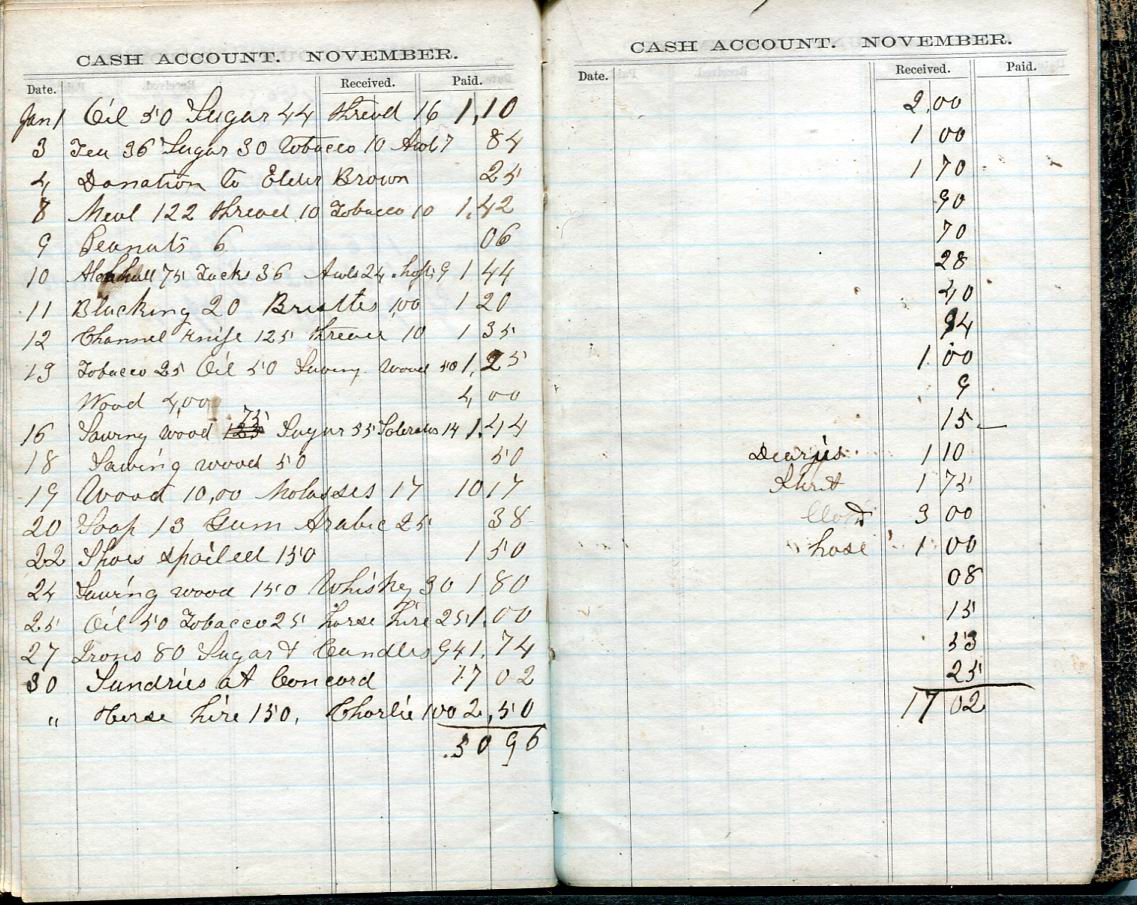 CASH ACCOUNT. NOVEMBER.
Date. Received. Paid.
Jan 1 Oil 50 Sugar 44 thread 16 1,10
3 Tea 36 Sugar 30 Tobacco 10 Awl 7 84
4 Donation to Elder Brown 25
8 Meal 122 thread 10 Tobacco 10 1,42
9 Peanuts 6 06
10 75 Tacks 36 Awls 24 9 1 44
11 Blacking 20 Bristles 100 1 20
12 Channel Knife 125 10 1 35
13 Tobacco 25 Oil 50 Sawing Wood 50 1,25
Wood 4,00 4 00
75
16 Sawing wood Sugar 55 Saleratus 14 1.44
18 Sawing wood 50 50
19 Wood 10,00 Molasses 17 10 17
20 Soap 13 Gum Arabic 25 38
22 Shoes spoiled 150 1 50
24 Sawing wood 150 Whiskey 30 1 80
25 Oil 50 Tobacco 25 horse hire 25 1.00
27 Irons 80 Sugar & Candles 94 1.74
30 Sundries at Concord 17 02
" Horse hire 150, Charlie 100 2,50
50 96
CASH ACCOUNT. NOVEMBER.
Date. Received. Paid.
2,00
1 00
1 70
90
70
28
40
94
1 00
9
15
1 10
1 75
3 00
hose 1 00
08
15
53
25
17 02